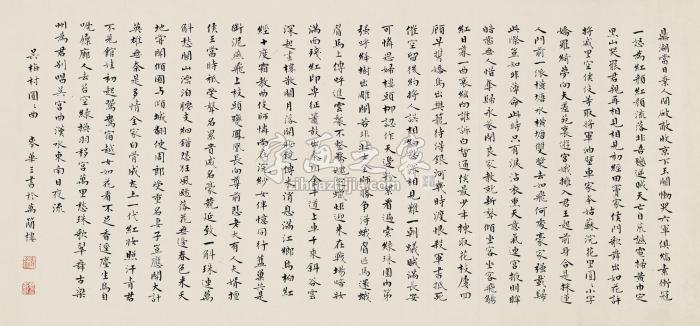 鼎湖當日棄人間破敵收京下玉關慟哭六軍俱縞素衝冠
一怒為紅顏紅顏流落非吾戀逆賊天亡自荒讌電掃黃巾定
黑山哭罷君親再相見相見初經田竇家侯門歌舞出如花許
將戚里箜篌伎等取將軍油壁車家本姑蘇浣花里圓圓小字
嬌羅綺夢向夫差苑裏遊宮娥擁入君王起前身合是採蓮
人門前一派橫塘水橫塘雙槳去如飛何處豪家強載歸
此際豈知非薄命此時只有淚沾衣熏天意氣連宮掖明眸
皓齒無人惜奪歸永巷閉良家教就新聲傾坐客坐客飛觴
紅日暮一曲哀絃向誰訴白皙通侯最少年揀取花枝屢回
顧早攜嬌鳥出樊籠待得銀河幾時渡恨殺軍書抵死
催苦留後約將人誤相約恩深相見難一朝蟻賊滿長安
可憐思婦樓頭柳認作天邊粉絮看遍索綠珠圍內第
強呼絳樹出雕闌若非壯士全師勝爭得蛾眉匹馬還蛾
眉馬上傳呼進雲鬟不整驚魂定蠟炬迎來在戰場啼妝
滿面殘紅印專征簫鼓向秦川金牛道上車千乘斜谷雲
深起畫樓散關月落開妝鏡傳來消息滿江鄉烏桕紅
經十度霜教曲伎師憐尚在浣紗女伴憶同行舊巢共是
銜泥燕飛上枝頭變鳳凰長向尊前悲老大有人夫婿擅
侯王當時祗受聲名累貴戚名豪競延致一斛珠連萬
斛愁關山漂泊腰支細錯怨狂風颺落花無邊春色來天
地嘗聞傾國與傾城翻使周郎受重名妻子豈應關大計
英雄無奈是多情全家白骨成灰土一代紅妝照汗青君
不見館娃初起鴛鴦宿越女如花看不足香逕塵生烏自
啼屧廊人去苔空綠換羽移宮萬里愁珠歌翠舞古梁
州為君別唱吳宮曲漢水東南日夜流
吳梅村圓圓曲 麥華三書於萬蘭樓